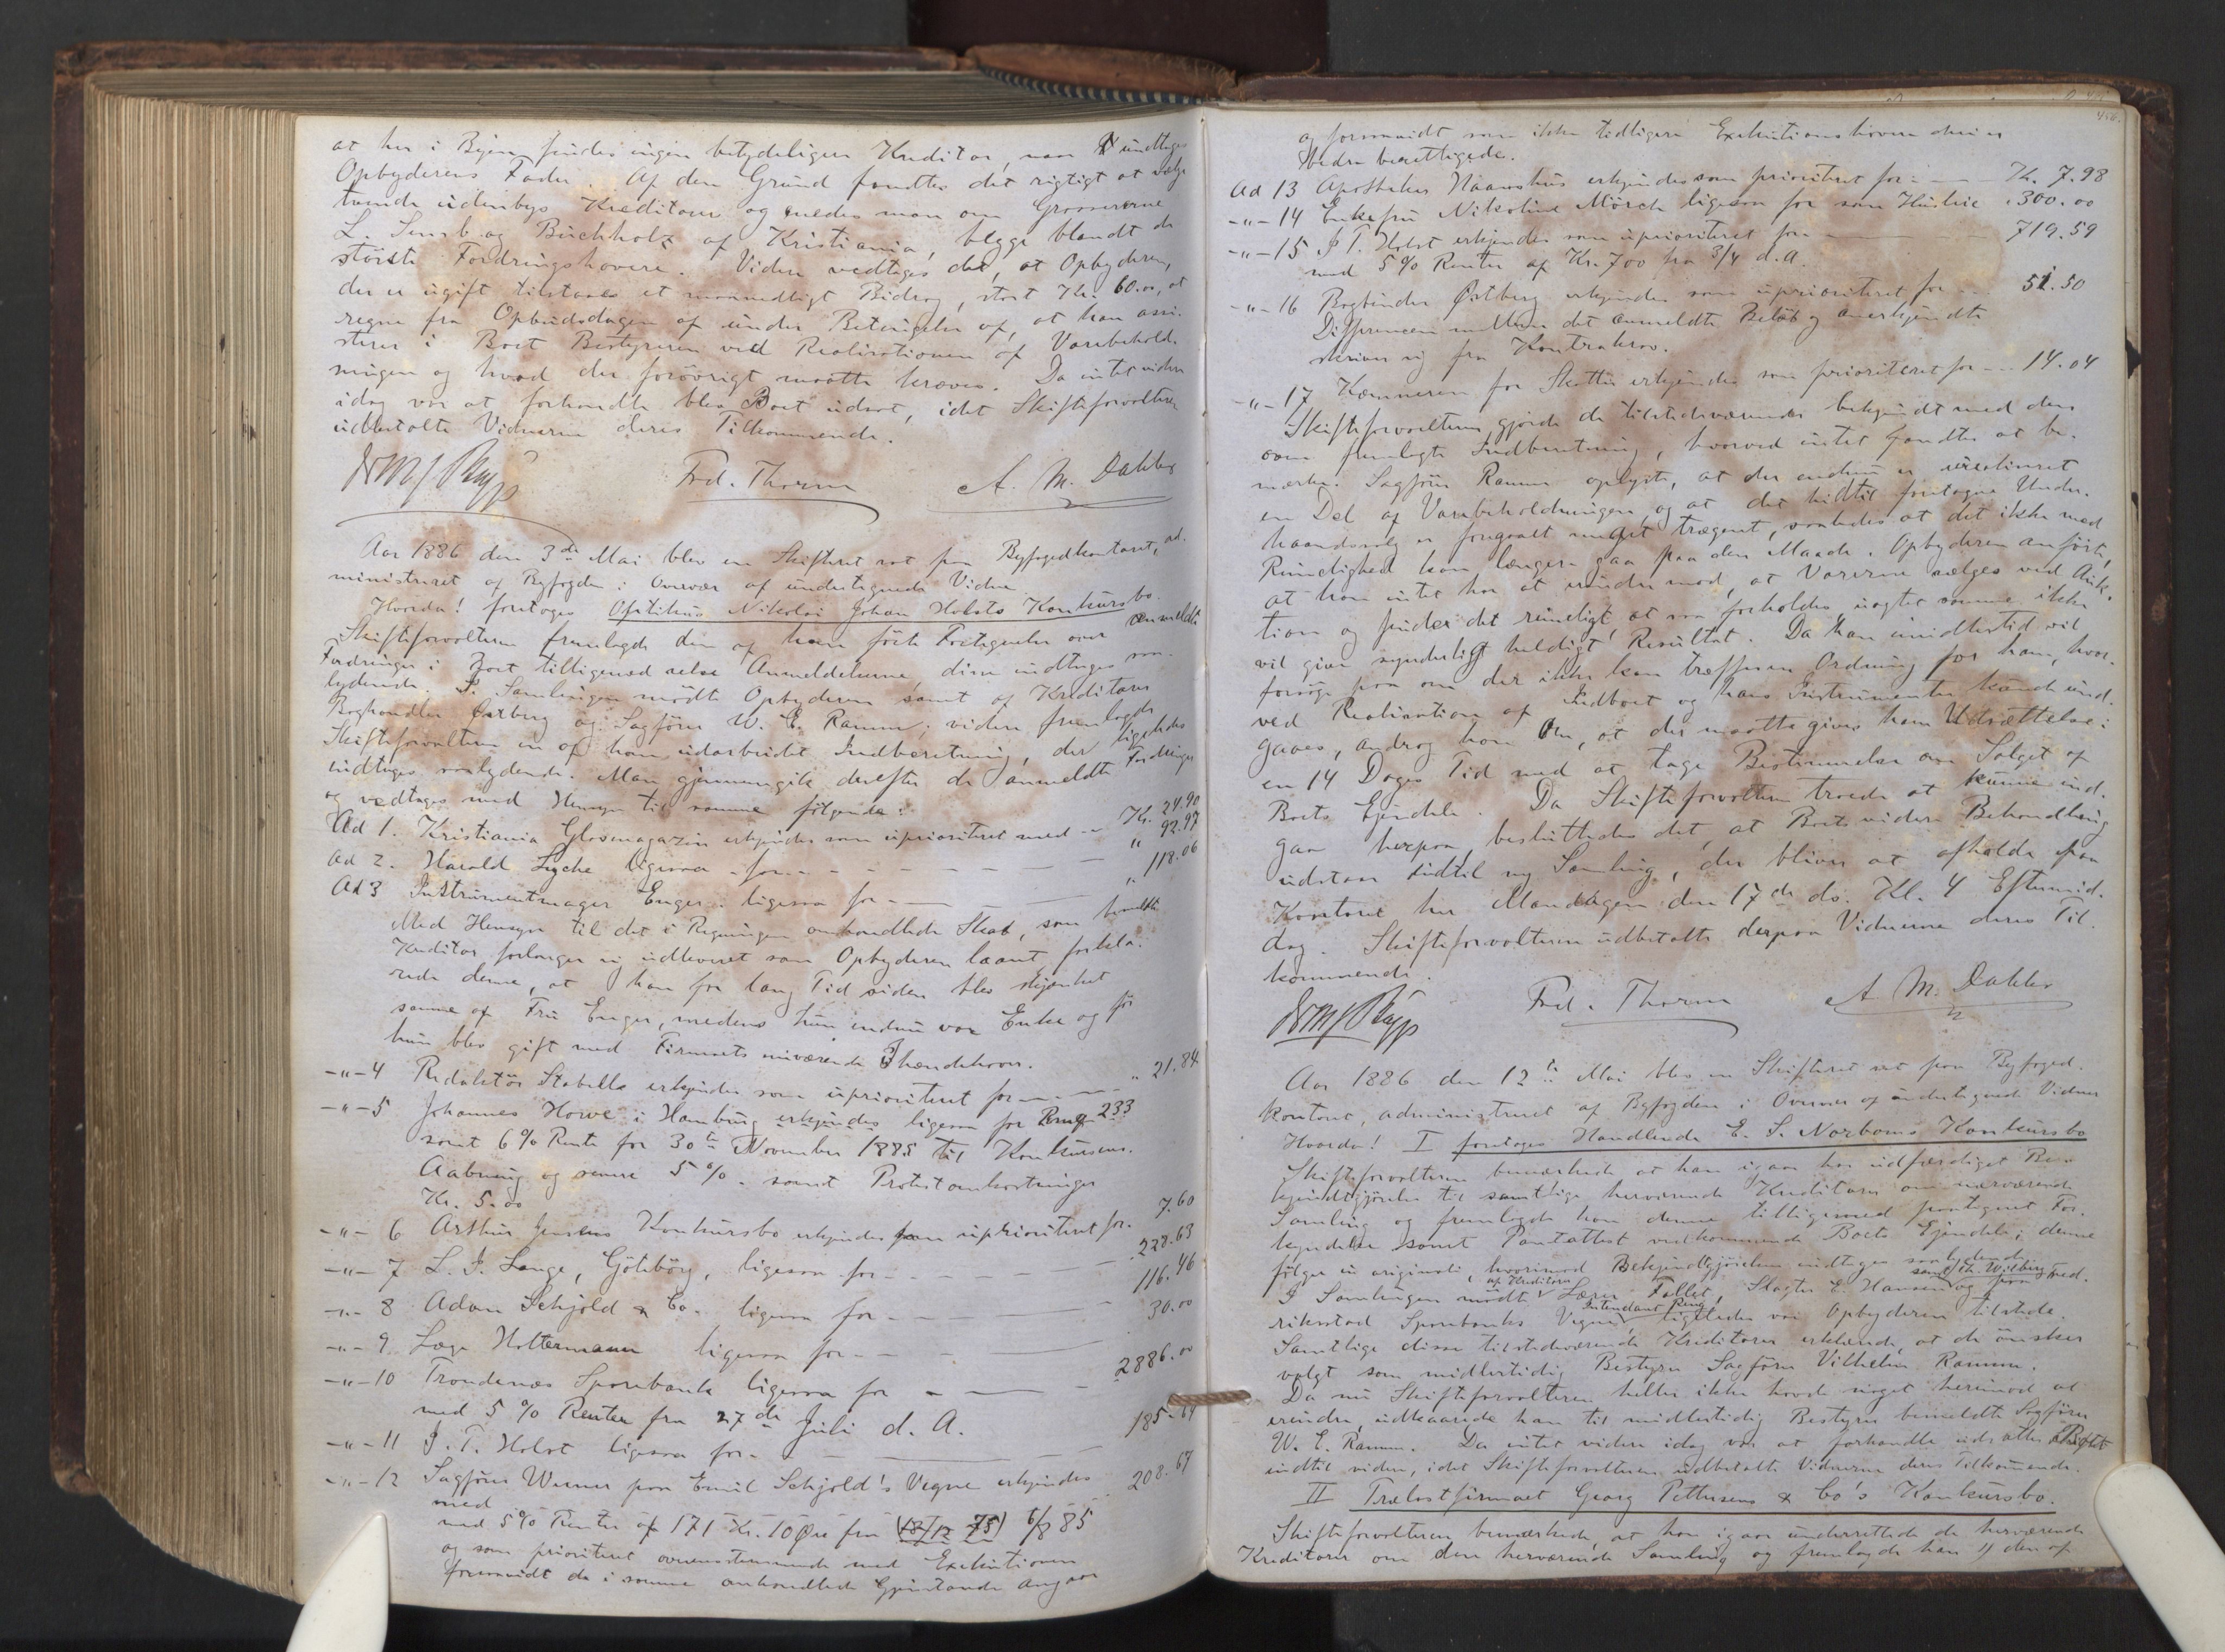 at her i Byen findes ingen betydeligere Kreditor, naar undtages
Opbyderens Fader. Af den Grund fandtes det rigtigt at vælge
tvende udenbys Kreditorer og enedes man om Grossererne
L. Senab og Buchholz af Kristiania, begge blandt de
störste Fordringshavere. Videre vedtoges det, at Opbyderen,
der er ugift tilstaaes et maanedligt Bidrag, stort Kr. 60.00, at
regne fra Opbudsdagen af under Betingelse af, at han assi-
sterer i Boet Bestyreren ved Realisationen af Varebehold-
ningen og hvad der forövrigt maatte kræves. Da intet videre
idag var at forhandle blev Boet udsat, idet Skifteforvalteren
udbetalte Vidnerne deres Tilkommende.
Fred. Thorm A. M. Dahler
Aar 1886 den 3de Mai blev en Skifteret sat paa Byfogedkontoret, ad-
ministreret af Byfogden i Overvær af undertegnede Vidner
Hvorda! foretoges Optikus Nikolai Johan Holsts Konkursbo.
Skifteforvalteren fremlagde den af ham förte Fortegnelse over anmeldte
Fordringer i Boet tilligemed selve Anmeldelserne, disse indtages saa-
lydende. I Samlingen mödte Opbyderen samt af Kreditorer
Boghandler Östberg og Sagförer W. E. Ramm; videre fremlagde
Skifteforvalteren en af ham udarbeidet Indberetning, der ligeledes
indtages saalydende. Man gjennemgik derefter de anmeldte Fordringer
og vedtoges med Hensyn til samme fölgende:
Ad 1. Kristiania Glasmagazin erkjendes som uprioriteret med - Kr. 24.90
Ad 2. Harald Lyche ligesaa for - - - " 92.97
Ad 3 Instrumentmager Enger ligesaa for - - " 118.06
Med Hensyn til det i Regningen omhandlede Skab, som
Kreditor forlanger udleveret som Opbyderen laant, forkla-
rede denne, at han for lang Tid siden blev skjænket
samme af Fru Enger, medens hun endnu var Enke og för
hun blev gift med Firmaets nuværende Ihændehaver.
-"-4 Redaktör Stabells erkjendes som uprioriteret for - " 21.84
-"-5 Johannes Howe i Hamburg erkjendes ligesaa for Rmg. 233
samt 6 % Rente fra 30te November 1885 til Konkursens
Aabning og senere 5 % - samt Protestomkostninger
Kr. 5.00
-"- 6 Arthur Jensens Konkursbo erkjendes som uprioriteret for - 7.60
-"- 7 L. J. Lange, Göteborg, ligesaa for - - - 228.63
-"- 8 Adam Schjold & Co. ligesaa for - - 116.46
-"- 9 Læge Holtermann ligesaa for - - - 30.00
-"-10 Trondenæs Sparebank ligesaa for - - - 2886.00
med 5 % Renter fra 27de Juli d. A.
-"-11 J. T. Holst ligesaa for - - 185.64
-"-12 Sagförer Werner paa Emil Schjold's Vegne erkjendes
med 208.67
med 5 % Renter af 171 Kr. 10 Öre fra (18/12 75) 6/8 85
og som prioriteret overensstemmende med Exekutionen
forsaavidt de i samme omhandlede Gjenstande angaar
456.
og forsaavidt som ikke tidligere Exekutionshavere deri er
bedre berettigede.
Ad 13 Apotheker Haarshus erkjendes som prioriteret for - Kr. 7.98
-"-14 Enkefru Nikoline Mörch ligesaa for som Husleie " 300.00
-"-15 J T. Holst erkjendes som uprioriteret for - 719.59
med 5 % Renter af Kr. 700 fra 3/4 d. A.
-"-16 Bogbinder Östberg erkjendes som uprioriteret for - 51.50
Differencen mellem det anmeldte Beløb og anerkjendte
skriver sig fra Kontrakrav.
-"-17 Kæmneren for Skatter erkjendes som prioriteret for - - 14.04
Skifteforvalteren gjorde de tilstedeværende bekjendt med den
som fremlagte Indberetning, hvorved intet fandtes at be-
mærke. Sagförer Ramm oplyste, at der endnu er urealiseret
en Del af Varebeholdningen og at det hidtil foretagne Under-
haandssalg er foregaaet meget trægent, saaledes at det ikke med
Rimelighed kan længere gaa paa den Maade. Opbyderen anförte,
at han intet har at erindre mod, at Varerne sælges ved Auk-
tion og finder det rimeligt at saa forholdes uagtet samme ikke
vil give synderligt heldigt Resultat. Da han imidlertid vil
forsöge paa om der ikke kan træffes en Ordning for ham, hvor-
ved Realisation af Indboet og hans Instrumenter kunde und-
gaaes, androg han om, at der maatte gives ham Udsættelse i
en 14 Dages Tid med at tage Bestemmelse om Salget af
Boets Ejendele. Da Skifteforvalteren troede at kunne ind-
gaa herpaa, besluttedes det, at Boets videre Behandling
udstaar indtil ny Samling, der bliver at afholde paa
Kontoret her Mandagen den 17de ds. Kl. 4 Eftermid-
dag. Skifteforvalteren udbetalte derpaa Vidnerne deres Til-
kommende.
Fred. Thorm A M. Dahler
Aar 1886 den 12te Mai blev en Skifteret sat paa Byfoged-
kontoret, administreret af Byfogden i Overvær af undertegnede Vidner
Hvorda! I foretoges Handlende E. S. Norboms Konkursbo
Skifteforvalteren bemærkede at han igaar har udfærdiget Be-
kjendtgjörelse til samtlige herværende Kreditorer om nærværende
Samling og fremlagde han denne tilligemed paategnet For-
kyndelse samt Pantattest vedkommende Boets Ejendele; denne
fölger in originali, hvorimod Bekjendtgjörelsen indtages saalydende.
I Samlingen mödte af Kreditorer Lærer Fallet, Slagter E. Hansen samt Ch. Wiberg og paa Fred-
rikstad Sparebanks Vegne Intendant Ring, ligeledes var Opbyderen tilstede.
Samtlige disse tilstedeværende Kreditorer erklærede, at de önsker
valgt som midlertidig Bestyrer Sagförer Vilhelm Ramm.
Da nu Skifteforvalteren heller ikke havde noget herimod at
erindre, udkaarede han til midlertidig Bestyrer bemeldte Sagförer
W. E. Ramm. Da intet videre idag var at forhandle udsattes Boet
indtil videre, idet Skifteforvalteren udbetalte Vidnerne deres Tilkommende.
II Trælastfirmaet Georg Pettersens & Co's Konkursbo.
Skifteforvalteren bemærkede, at han igaar underrettede de herværende
Kreditorer om den herværende Samling og fremlagde han 1) den af